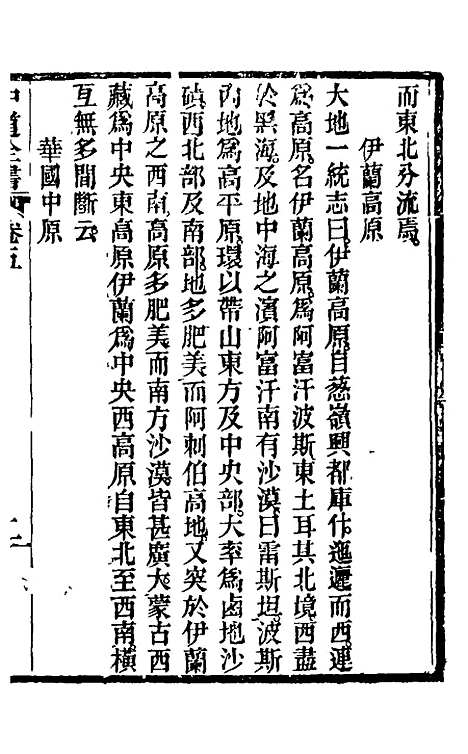 而東北分流焉
伊蘭高原
大地一統志曰伊蘭高原自葱嶺興都庫什迤邐而西連
爲高原名伊蘭高原爲阿富汗波斯東土耳其北境西盡
於黑海及地中海之濱阿富汗南有沙漠曰雷斯坦波斯
內地爲高平原環以帶山東方及中央部大率爲鹵地沙
磧西北部及南部地多肥美而阿剌伯高地又突於伊蘭
高原之西南高原多肥美而南方沙漠皆甚廣大蒙古西
藏爲中央東高原伊蘭爲中央西高原自東北至西南橫
亙無多間斷云
華國中原
中道全書
卷五